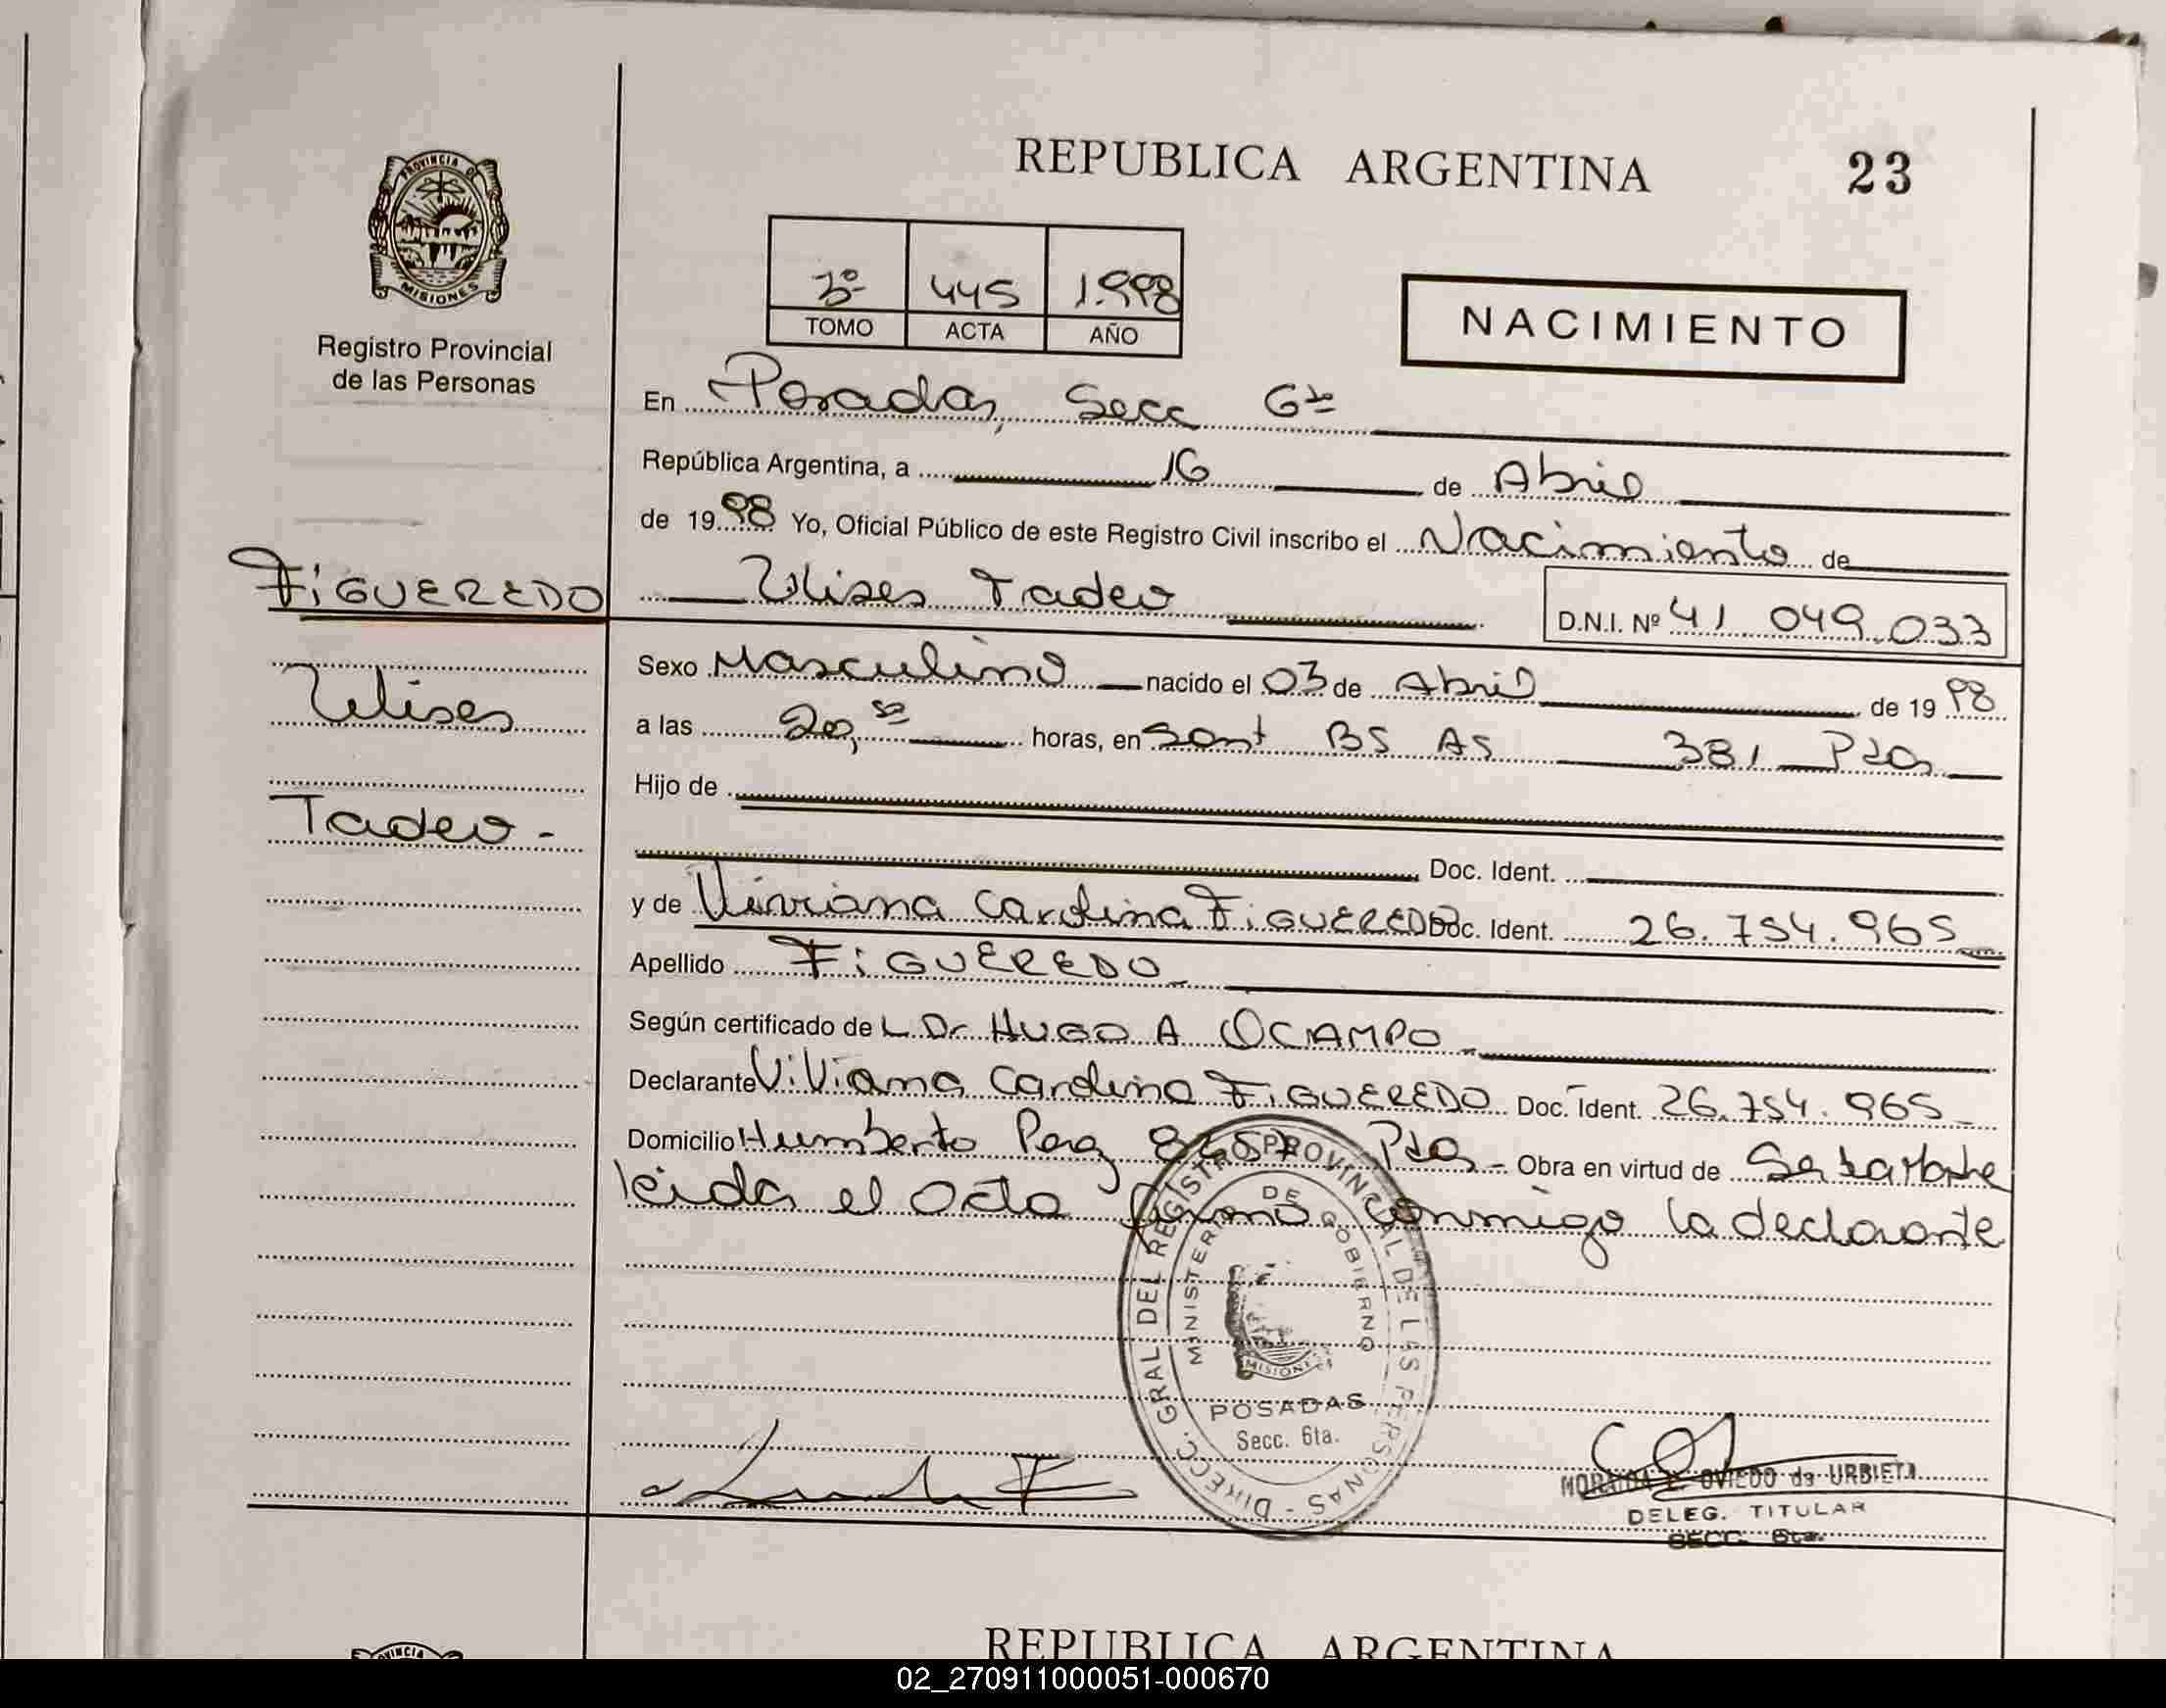 REPUBLICA ARGENTINA 23
PROVINCIA DE
MISIONES
Registro Provincial
de las Personas
3º 445 1.998
TOMO ACTA AÑO
NACIMIENTO
En Posadas, Secc 6ta
República Argentina, a 16 de Abril
de 1998 Yo, Oficial Público de este Registro Civil inscribo el Nacimiento de
FIGUEREDO
Ulises Tadeo
D.N.I. Nº 41.049.033
Sexo Masculino nacido el 03 de Abril de 1998
Ulises
a las 20, horas, en Sant BS AS 381 Pdas
Hijo de
Tadeo.-
Doc. Ident.
y de Viviana Carolina FIGUEREDO Doc. Ident. 26.754.965
Apellido FIGUEREDO
Según certificado de L Dr HUGO A OCAMPO
Declarante Viviana Carolina FIGUEREDO Doc. Ident. 26.754.965
Domicilio Humberto Pdas - Obra en virtud de
leida el acta firma conmigo la declarante
DIRECC. GRAL DEL REGISTRO PROVINCIAL DE LAS PERSONAS -
MINISTERIO DE GOBIERNO
MISIONES
POSADAS
Secc. 6ta.
OVIEDO de URBIETA
DELEG. TITULAR
SECC. 6ta.
REPUBLICA ARGENTINA
02_270911000051-000670